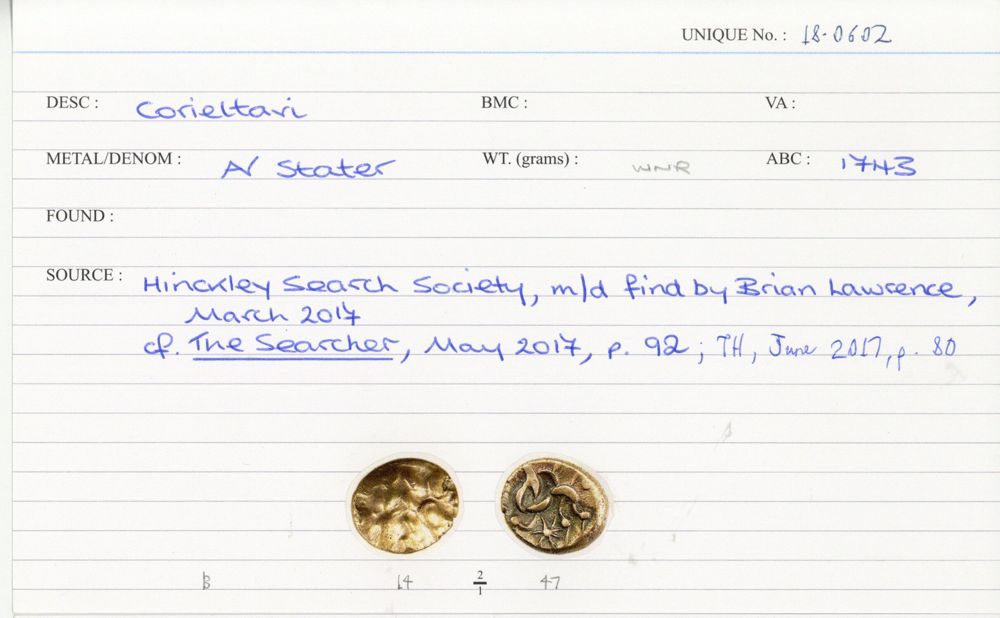 UNIQUE No. : 18-0602
DESC : Corieltavi BMC : VA :
METAL/DENOM : A/ Stater WT. (grams) : WNR ABC : 1743
FOUND :
SOURCE : Hinckley Search Society, m/d find by Brian Lawrence,
March 2017
cf. The Searcher, May 2017, p. 92; TH, June 2017, p. 80
14 2/1 47